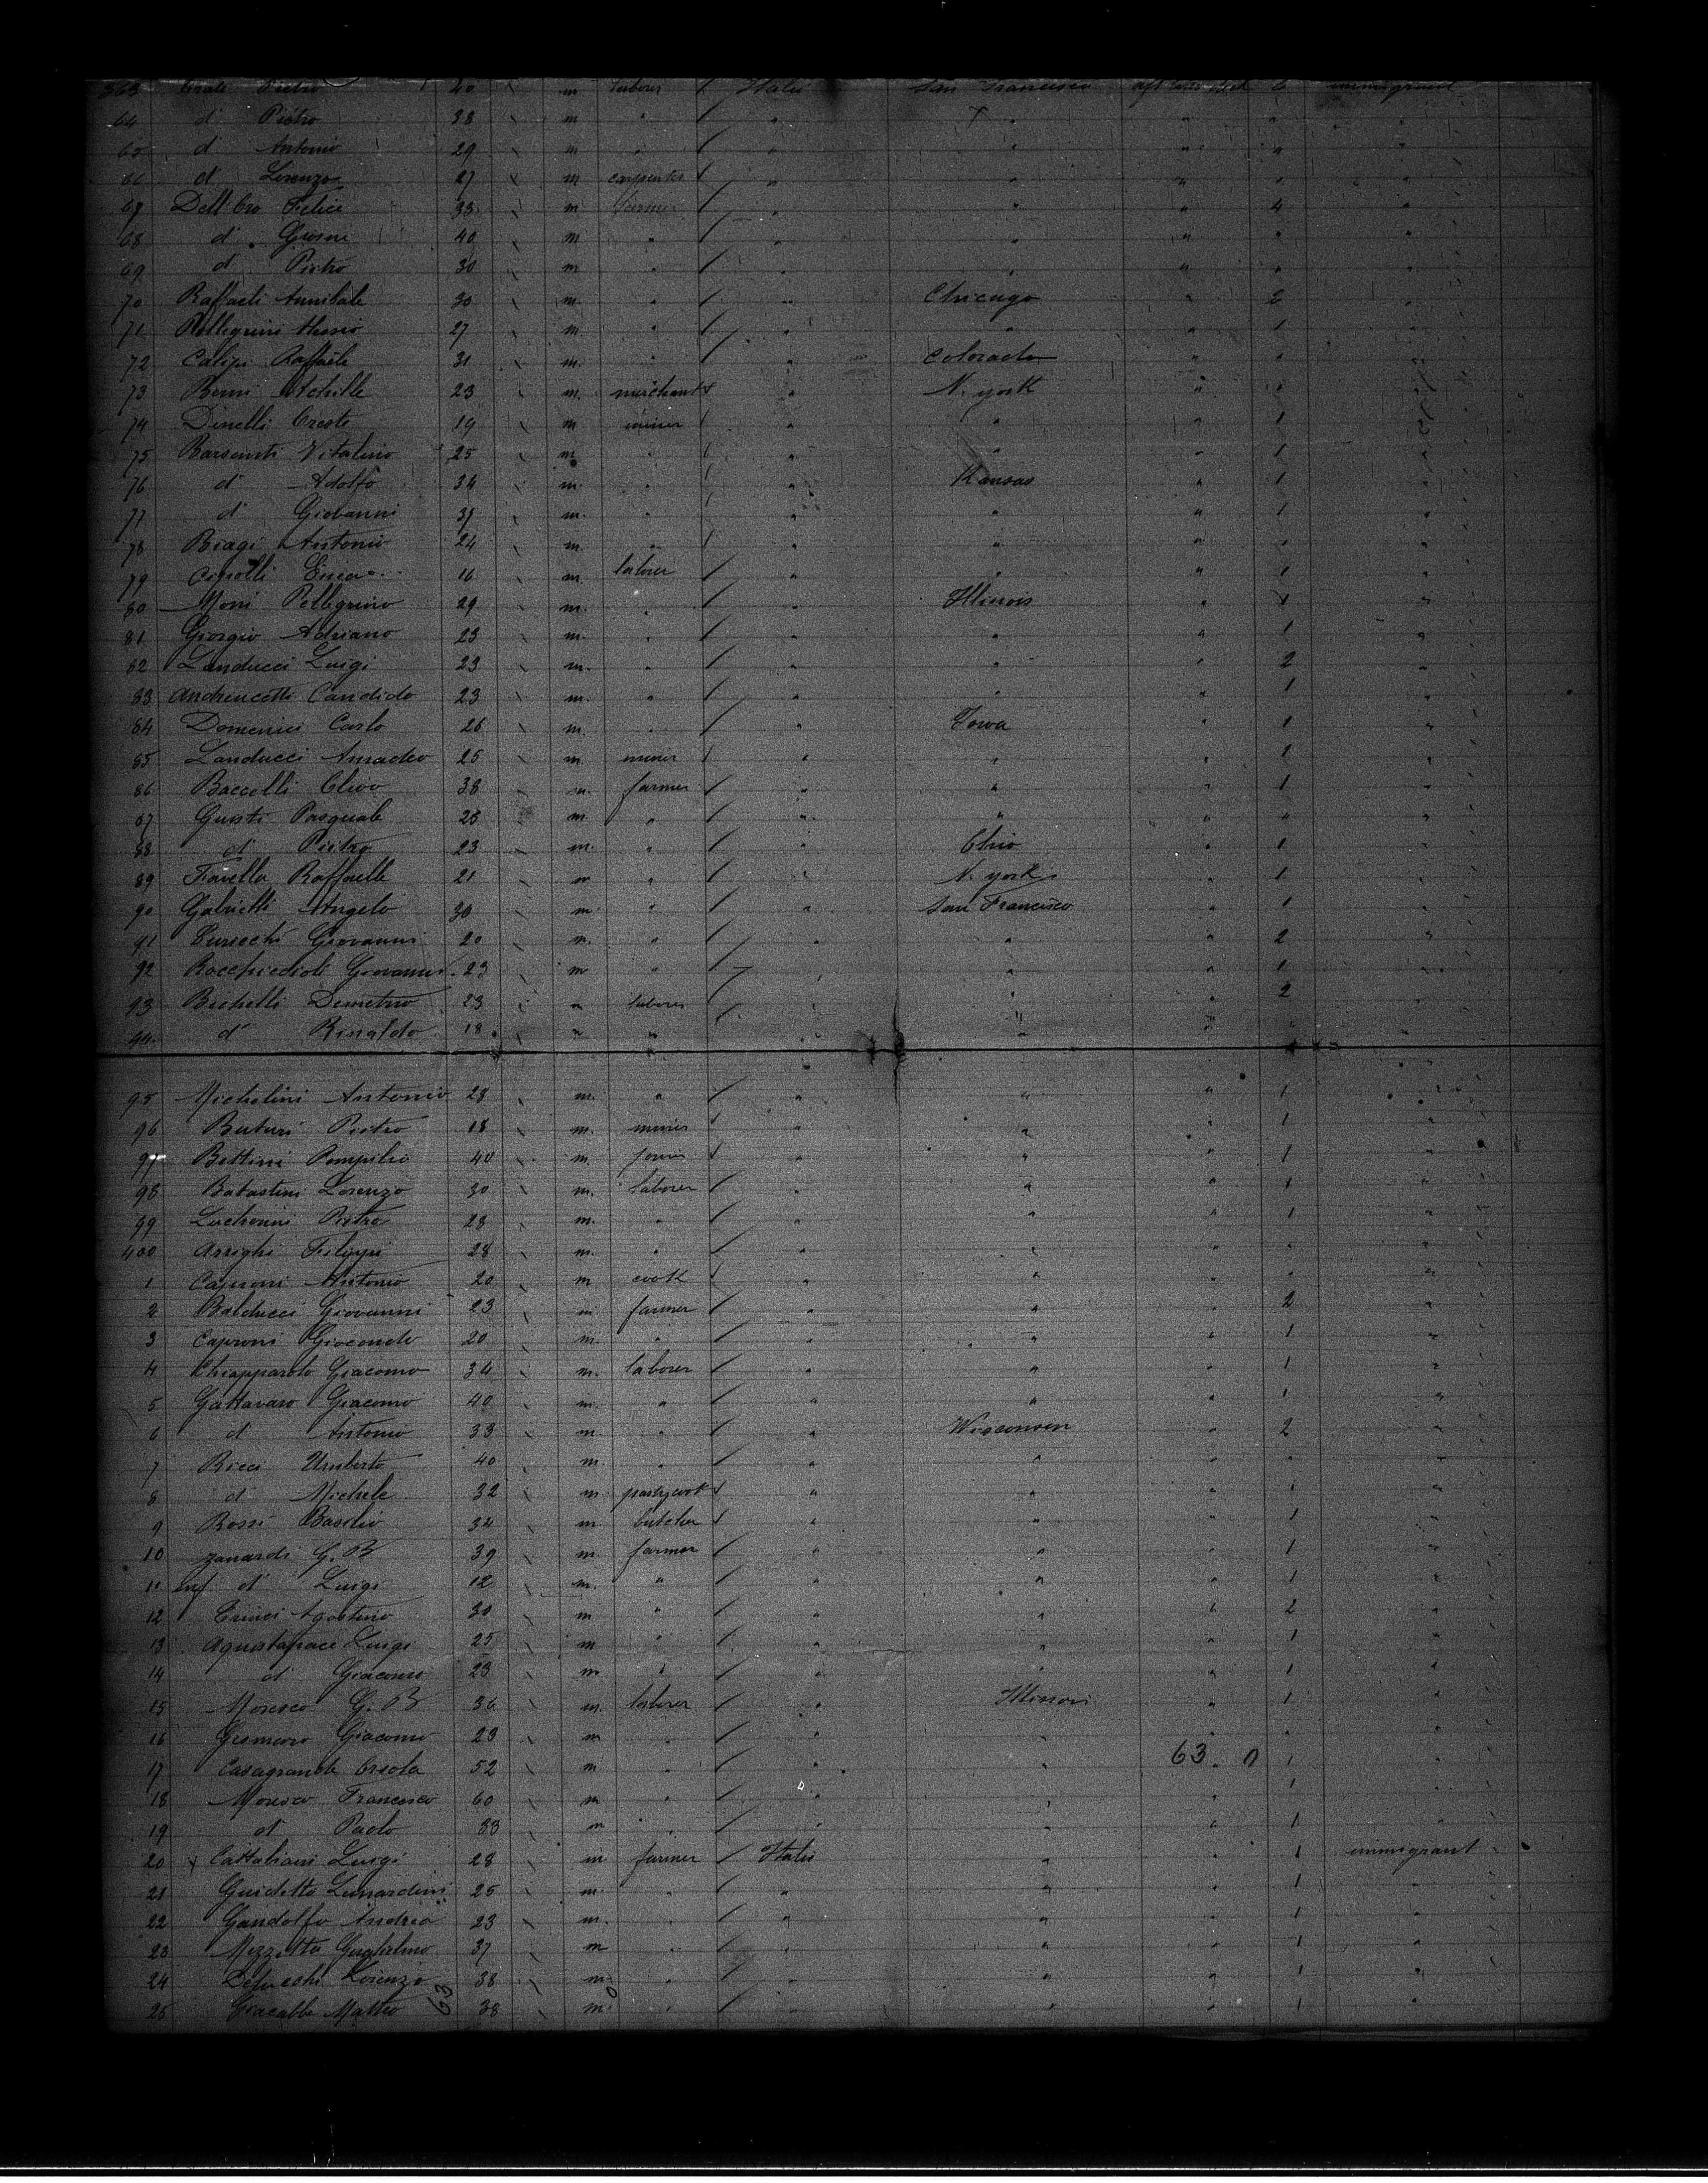 363 Pietro 40 m laborer Italy San Francisco 6 immigrant
64 d' Pietro 38 m " " " " " "
65 d' Antonio 29 m " " " " " "
66 d' Lorenzo 27 m carpenter " " " " "
67 Dell'Oro Felice 35 m farmer " " " 4 "
68 d' 40 m " " " " " "
69 d' Pietro 30 m " " " " " "
70 Raffaeli Annibale 30 m. " " Chicago " 2 "
71 Pellegrini 27 m. " " " " 1 "
72 Raffaele 31 m. " " Colorado " " "
73 Achille 23 m. merchant " N. york " " "
74 Dinelli Oreste 19 m miner " " " 1 "
75 Barsanti Vitalino 25 m " " " " 1 "
76 d' Adolfo 34 m. " " Kansas " 1 "
77 d' Giovanni 37 m. " " " " 1 "
78 Biagi Antonio 24 m. " " " " 1 "
79 16 m. laborer " " " 1 "
80 Moni Pellegrino 29 m. " " Illinois " 1 "
81 Giorgio Adriano 23 m. " " " " 1 "
82 Landucci Luigi 23 m. " " " " 2 "
83 Andreucetti Candido 23 m. " " " " 1 "
84 Domenici Carlo 26 m. " " Iowa " 1 "
85 Landucci Amadeo 25 m miner " " " 1 "
86 Baccelli Olivo 38 m. farmer " " " 1 "
87 Giusti Pasquale 25 m. " " " " " "
88 d' Pietro 23 m. " " Ohio " 1 "
89 Favella Raffaelle 21 m " " N. york " 1 "
90 Gabrielli Angelo 30 m " " San Francisco " 1 "
91 Giovanni 20 m. " " " " 2 "
92 Rocchiccioli Giovanni 23 m " " " " 1 "
93 Bechelli Demetrio 23 m laborer " " " 2 "
94 d' Rinaldo 18 m " " " " " "
95 Michelini Antonio 28 m. " " " " 1 "
96 Pietro 18 m. miner " " " 1 "
97 Bettini Pompilio 40 m. " " " 1 "
98 Lorenzo 30 m. laborer " " " 1 "
99 Pietro 28 m. " " " " 1 "
400 Arrighi 28 m. " " " " " "
1 Caproni Antonio 20 m cook " " " " "
2 Balducci Giovanni 23 m farmer " " " 2 "
3 Caproni Giocondo 20 m. " " " " 1 "
4 Giacomo 34 m. laborer " " " 1 "
5 Gattavaro Giacomo 40 m. " " " " 1 "
6 d' Antonio 33 m. " " Wisconsin " 2 "
7 Ricci Umberto 40 m. " " " " " "
8 d' Michele 32 m pastrycook " " " 1 "
9 Rossi Basilio 34 m butcher " " " 1 "
10 Zanardi G. B 39 m. farmer " " " 1 "
11 inf d' Luigi 12 m. " " " " 1 "
12 Agostino 30 m " " " " 2 "
13 Aquistapace Luigi 25 m " " " " 1 "
14 d' Giacomo 23 m " " " " 1 "
15 Moresco G. B 36 m. laborer " Illinois " 1 "
16 Giacomo 23 m " " " " " "
17 Casagrande Orsola 52 m " " " 63 " 1 "
18 Moresco Francesco 60 m " " " " 1 "
19 d' Paolo 33 m " " " " 1 "
20 x Cattabiani Luigi 28 m farmer Italy " " 1 immigrant
21 Guidetto Lunardini 25 m. " " " " 1 "
22 Gandolfo Andrea 23 m. " " " " 1 "
23 Mezzetta Guglielmo 37 m " " " " 1 "
24 Lorenzo 38 m. " " " " 1 "
25 Matteo 63 38 m. " " " " 1 "